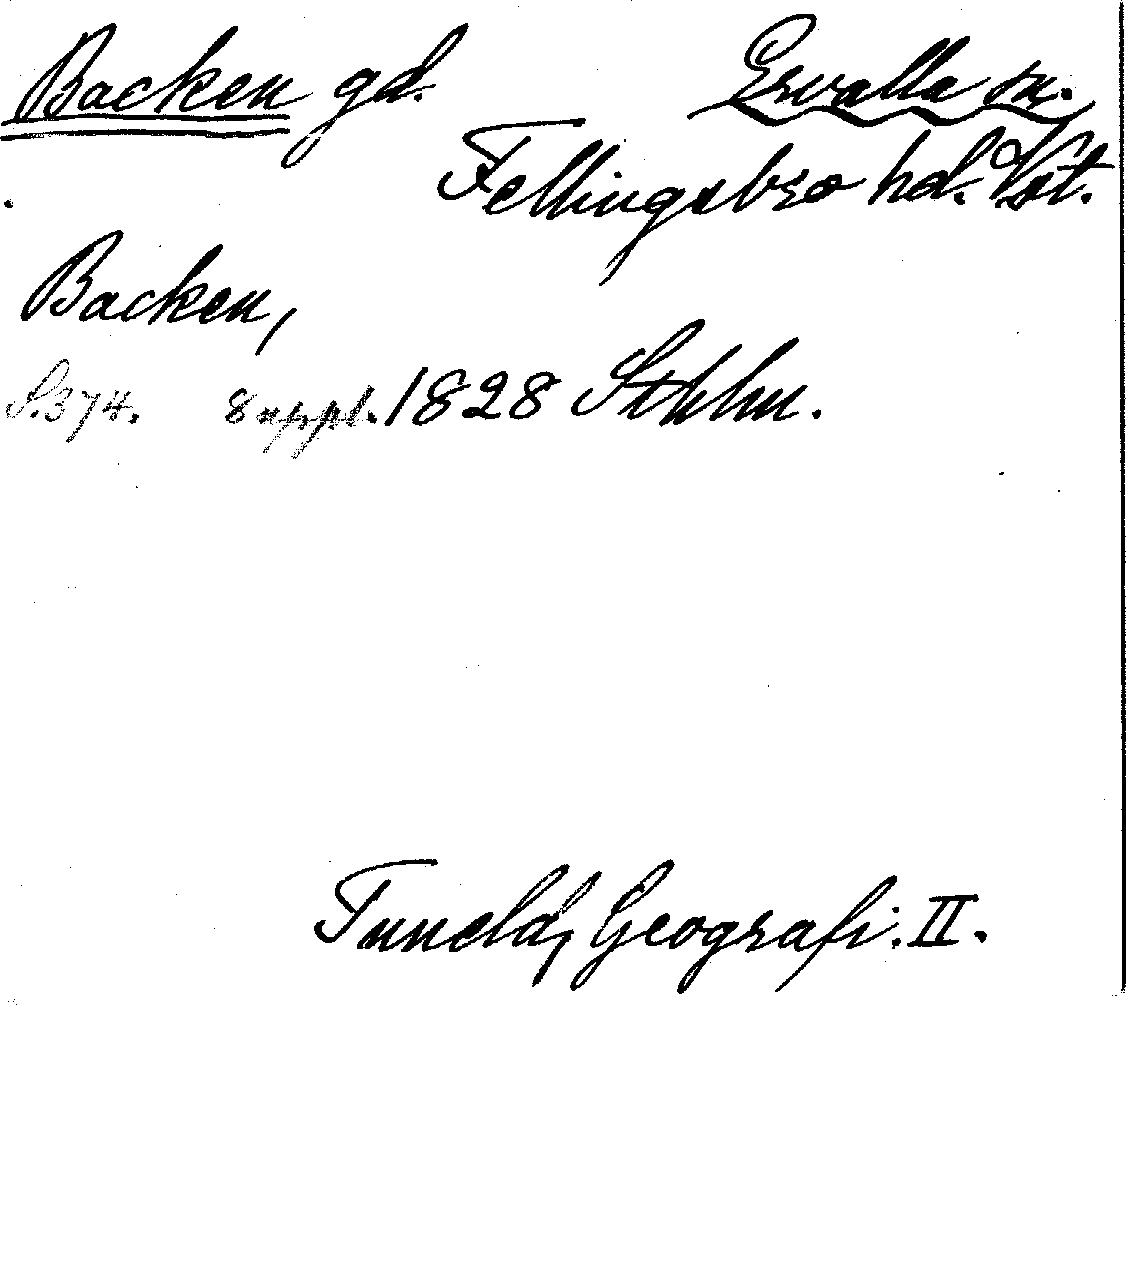 Backen gd. Ervalla sn.
Fellingsbro hd. Vst.
Backen,
S. 374. 8 uppl. 1828 Sthlm.
Tuneld, Geografi. II.